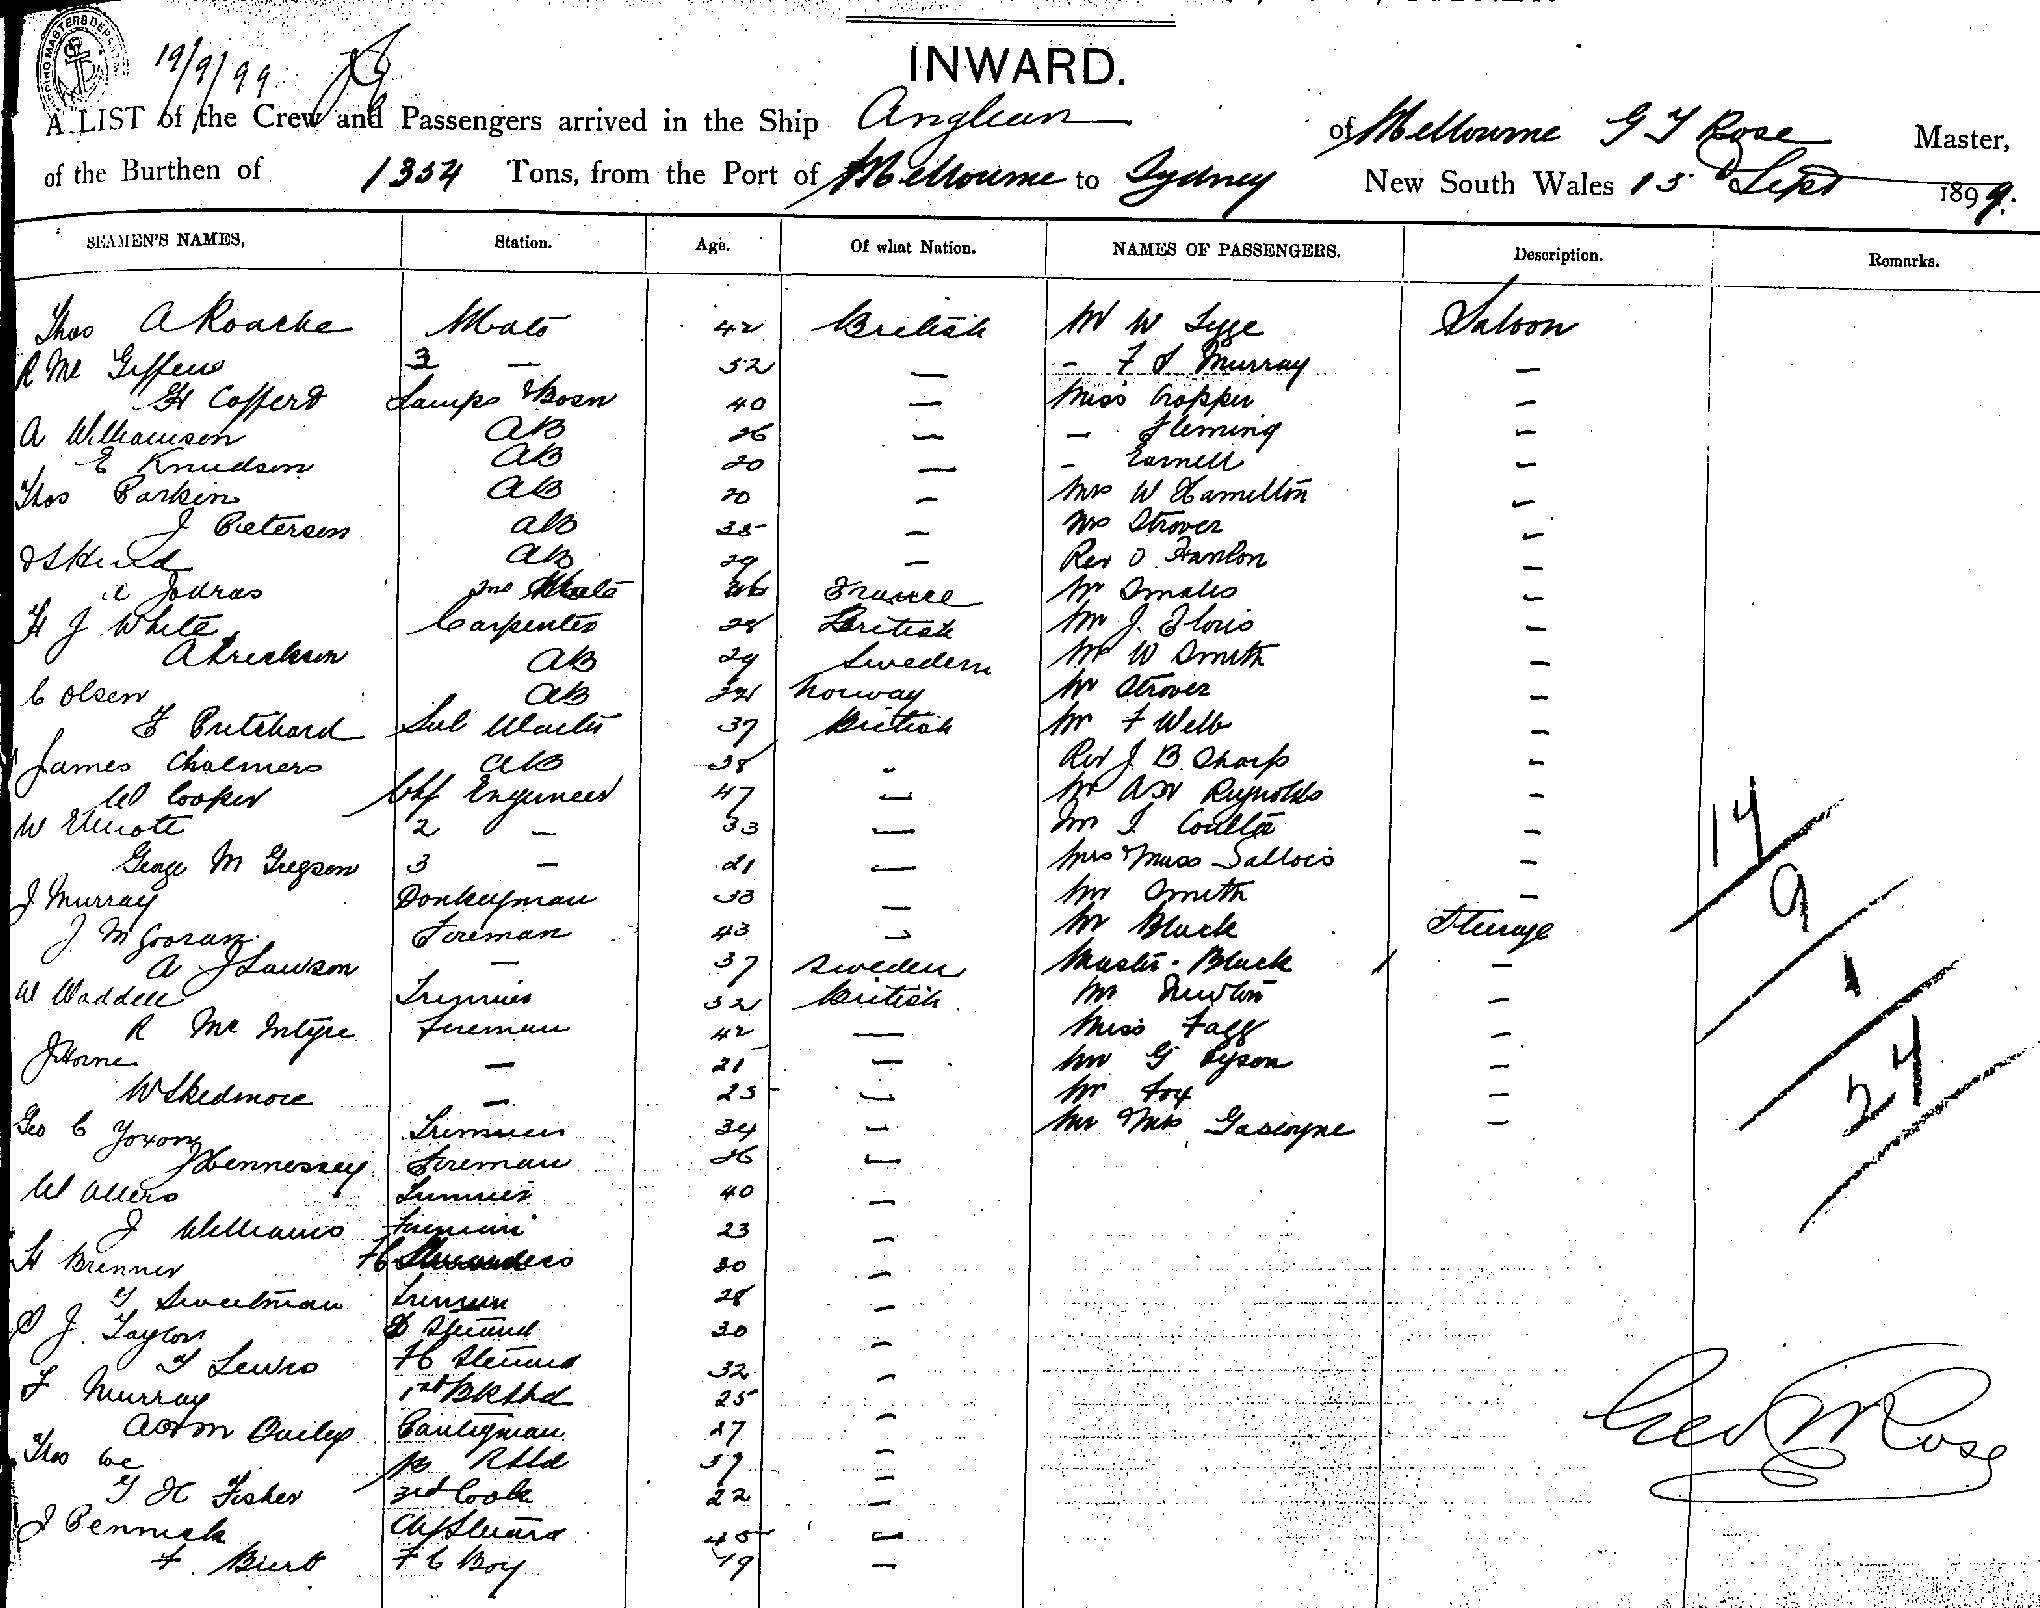 19/9/99
INWARD.
A LIST of the Crew and Passengers arrived in the Ship Anglian of Melbourne G T Rose Master,
of the Burthen of 1354 Tons, from the Port of Melbourne to Sydney New South Wales 15 Sept 1899.
SEAMEN'S NAMES, Station. Age. Of what Nation. NAMES OF PASSENGERS. Description. Remarks.
Thos A Roache Mate 42 British Mr W Saloon
R Mc Giffens 3 — 52 — - F S Murray —
H Cofferd Lamps & Bosn 40 — Miss Cropper —
A Williamson AB 26 — — Fleming —
E Knudson AB 20 — - —
Thos Parkin AB 20 - Mrs W Hamilton —
J Petersen AB 35 - Mrs Strover —
AB 29 - Rev O Hanlon —
2nd Mate 26 France Mr Smales —
H J White Carpenter 28 British Mr J. —
A Erickson AB 29 Sweden Mr W Smith —
C Olsen AB Norway Mr Strover —
F Pritchard 37 British Mr F Webb —
James Chalmers AB 38 - Rev J. B. Sharp —
W Cooper Chf Engineer 47 — Mr A W Reynolds —
W 2 — 33 — Mr J Coulta —
George M Gregson 3 — 21 — Mrs & Miss —
J Murray Donkeyman 38 — Mr Smith —
Fireman 43 — Mr Black Steerage
A J Lawson — 37 Sweden Master Black —
W Waddell Trimmer 32 British Mr Newton —
R Mc Intyre Fireman 42 — Miss Fagg —
J Horne — 21 — Mr G Tyson —
W Skedmore — 25 — Mr Fox —
Geo C Yoxon Trimmer 34 — Mr & Mrs Gascoyne —
J Hennessey Fireman 26 —
W Allers Trimmer 40 —
J Williams 23 —
H Brenner 30 —
T Sweetman Trimmer 28 —
J. Taylor Steward 30 —
T Lewis F C Steward 32 —
F Murray 25 —
Bailey Pantryman 27 —
Thos —
T H Fisher 3rd Cook 22 —
J Pennick Chf Steward 45 —
F. F C Boy 19 —
14
9
1
24
Geo Rose